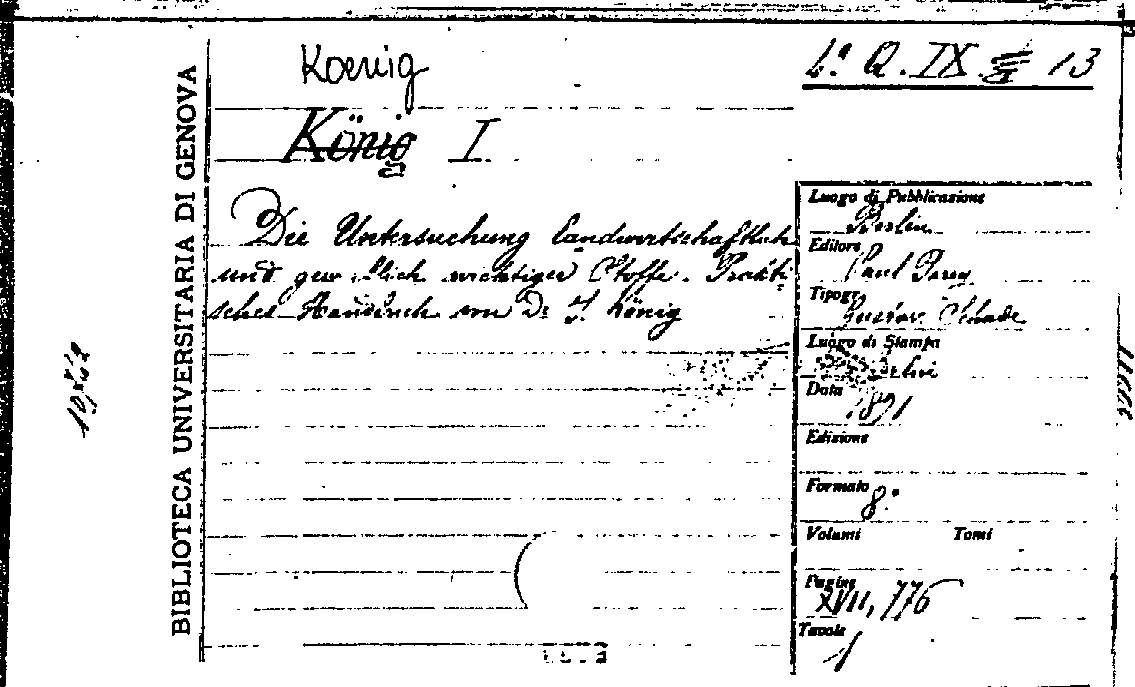 Koenig
König I
L.a Q. IX. 13
BIBLIOTECA UNIVERSITARIA DI GENOVA
Die Untersuchung landwirtschaftlich
und gewerblich wichtiger Stoffe. Prakti
sches Handbuch von Dr J. König
Luogo di Pubblicazione
Berlin
Editore
Paul Parey
Tipogr.
Gustav Schade
Luogo di Stampa
Data
1891
Edizione
Formato
8°
Volumi Tomi
Pagine
XVII, 776
Tavole
1